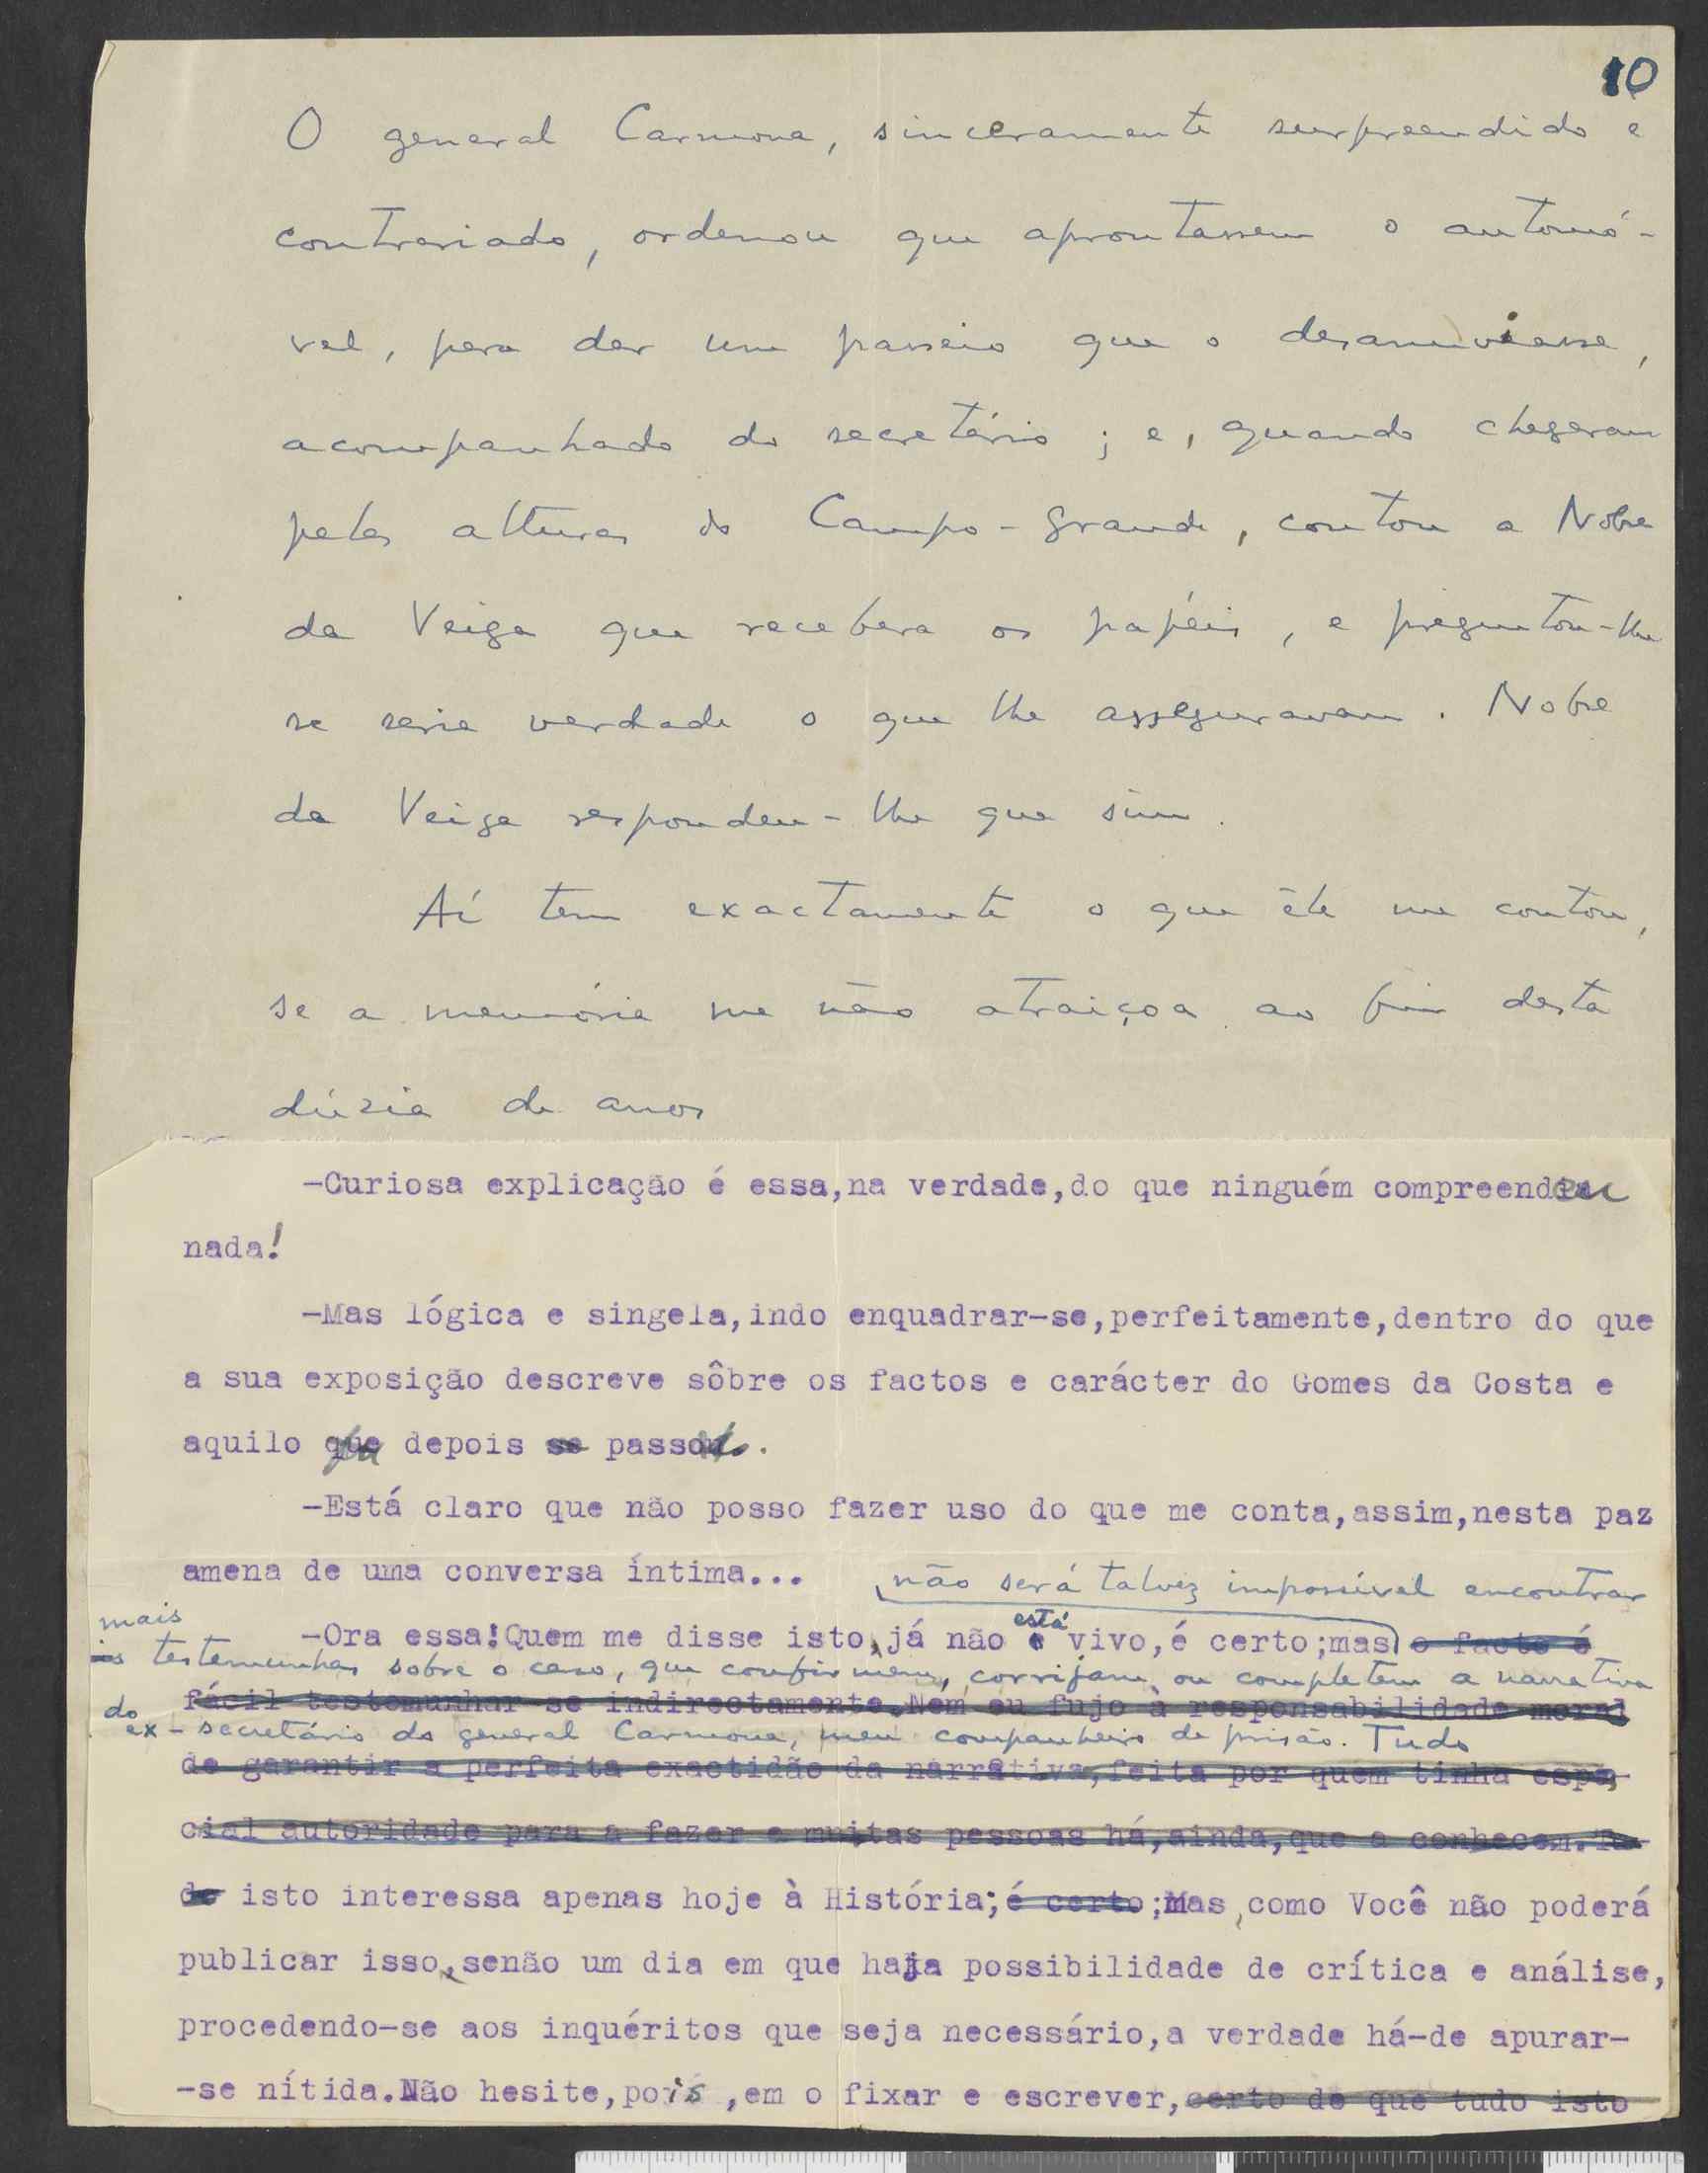 10
O general Carmona, sinceramente surpreendido e
contrariado, ordenou que aprontassem o automó-
vel, para dar um passeio que o desanuviasse,
acompanhado do secretário; e, quando chegaram
pelas alturas do Campo-Grande, contou a Nobre
da Veiga que recebera os papéis, e preguntou-lhe
se seria verdade o que lhe asseguravam. Nobre
da Veiga respondeu-lhe que sim.
Aí tem exactamente o que êle me contou,
se a memória me não atraiçoa ao fim desta
dúzia de anos
-Curiosa explicação é essa,na verdade,do que ninguém compreendeu
nada!
-Mas lógica e singela,indo enquadrar-se,perfeitamente,dentro do que
a sua exposição descreve sôbre os factos e carácter do Gomes da Costa e
aquilo que depois se passou.
-Está claro que não posso fazer uso do que me conta,assim,nesta paz
amena de uma conversa íntima...
não será talvez impossível encontrar
mais
está
-Ora essa!Quem me disse isto,já não é vivo,é certo;mas o facto é
testemunhas sobre o caso, que confirmem, corrijam, ou completem a narrativa
fácil testemunhar-se indirectamente.Nem eu fujo à responsabilidade moral
do ex-secretário do general Carmona, meu companheiro de prisão. Tudo
de garantir a perfeita exactidão da narrativa,feita por quem tinha espe-
cial autoridade para a fazer e muitas pessoas há,ainda,que a conhecem.Tu-
do isto interessa apenas hoje à História;é certo;Mas,como Você não poderá
publicar isso,senão um dia em que haja possibilidade de crítica e análise,
procedendo-se aos inquéritos que seja necessário,a verdade há-de apurar-
-se nítida.Não hesite,pois,em o fixar e escrever,certo de que tudo isto